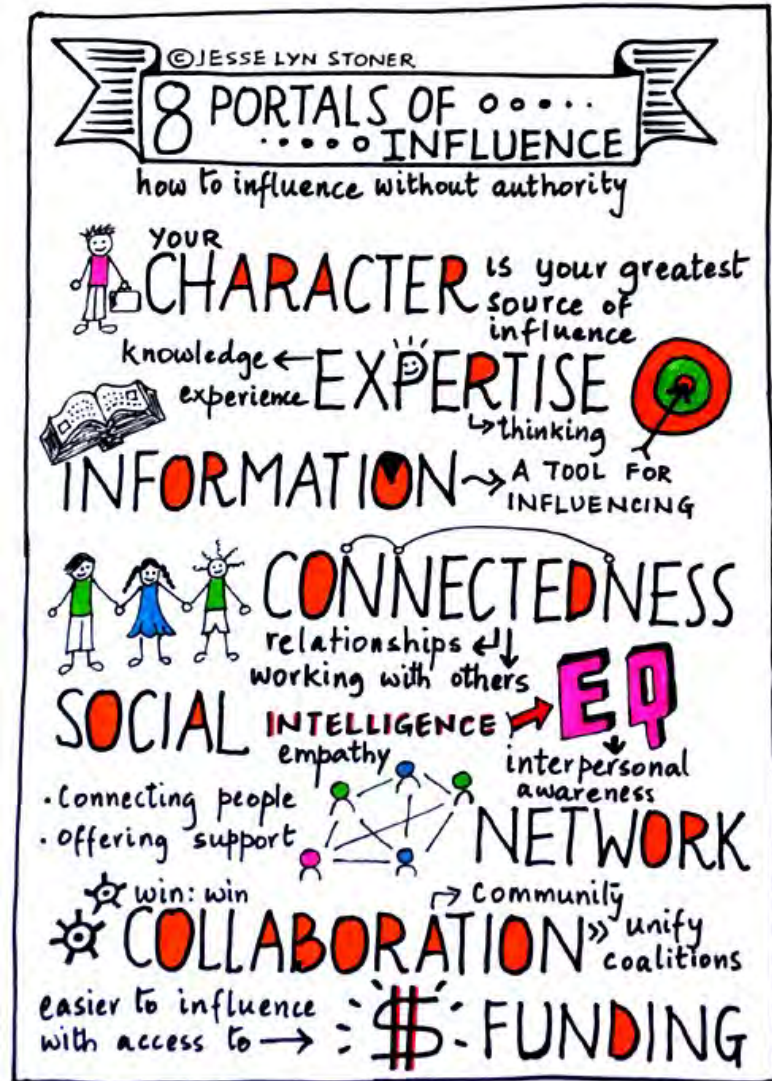 ©JESSE LYN STONER
8 PORTALS OF
INFLUENCE
how to influence without authority
YOUR
CHARACTER is your greatest
source of
influence
knowledge ← EXPERTISE
experience
↳ thinking
INFORMATION → A TOOL FOR
INFLUENCING
CONNECTEDNESS
relationships
working with others
SOCIAL INTELLIGENCE → EQ
empathy
interpersonal
awareness
· Connecting people
· Offering support
NETWORK
win: win
community
COLLABORATION » unify
coalitions
easier to influence
with access to → $ FUNDING